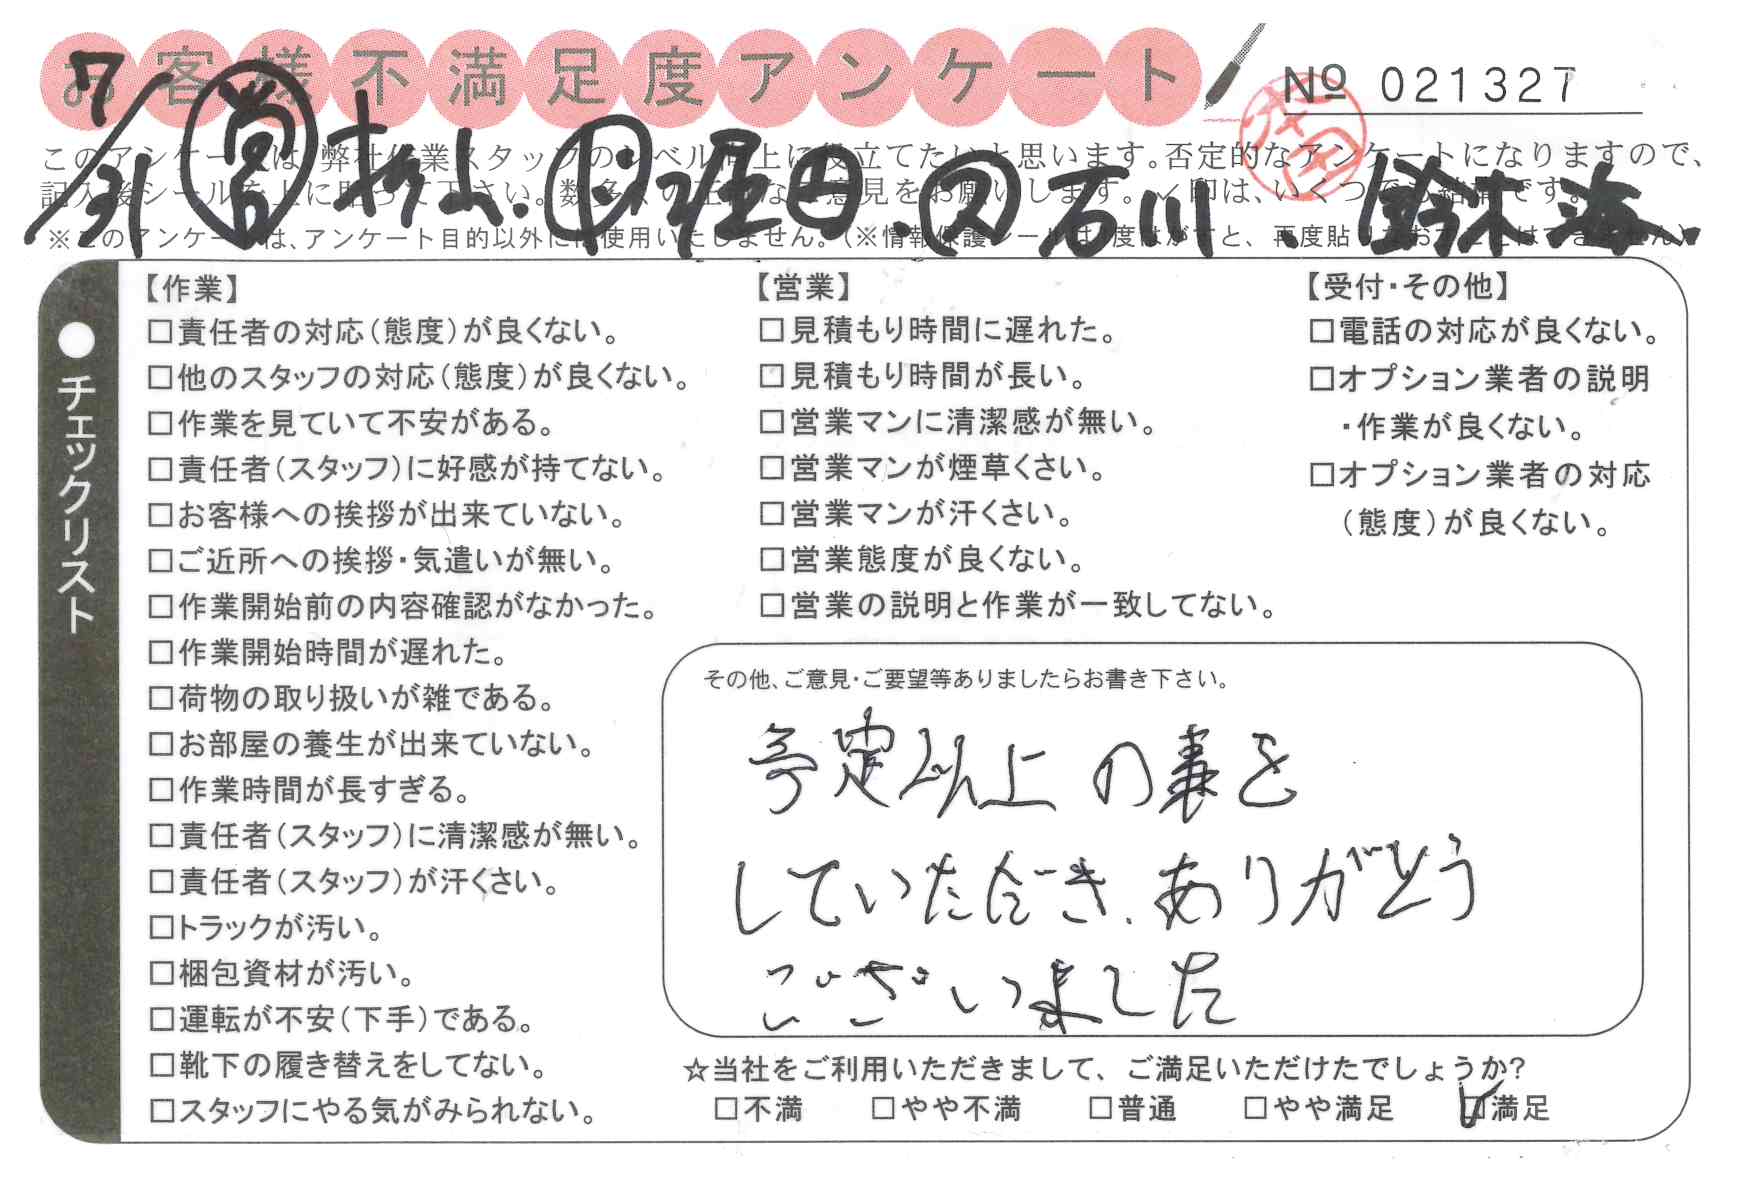 お客様不満足度アンケート
№ 021327
7/31 営 杉山. 堀田、石川、鈴木海
このアンケートは、弊社作業スタッフのレベル向上に役立てたいと思います。否定的なアンケートになりますので、
記入後シールを上に貼って下さい。数多くの正直なご意見をお願いします。✓印は、いくつでも結構です。
※このアンケートは、アンケート目的以外には使用いたしません。(※情報保護シールは1度はがすと、再度貼りなおすことはできません)
●チェックリスト
【作業】
□責任者の対応(態度)が良くない。
□他のスタッフの対応(態度)が良くない。
□作業を見ていて不安がある。
□責任者(スタッフ)に好感が持てない。
□お客様への挨拶が出来ていない。
□ご近所への挨拶・気遣いが無い。
□作業開始前の内容確認がなかった。
□作業開始時間が遅れた。
□荷物の取り扱いが雑である。
□お部屋の養生が出来ていない。
□作業時間が長すぎる。
□責任者(スタッフ)に清潔感が無い。
□責任者(スタッフ)が汗くさい。
□トラックが汚い。
□梱包資材が汚い。
□運転が不安(下手)である。
□靴下の履き替えをしてない。
□スタッフにやる気がみられない。
【営業】
□見積もり時間に遅れた。
□見積もり時間が長い。
□営業マンに清潔感が無い。
□営業マンが煙草くさい。
□営業マンが汗くさい。
□営業態度が良くない。
□営業の説明と作業が一致してない。
【受付・その他】
□電話の対応が良くない。
□オプション業者の説明
・作業が良くない。
□オプション業者の対応
(態度)が良くない。
その他、ご意見・ご要望等ありましたらお書き下さい。
予定以上の事を
していただき、ありがとう
ございました
☆当社をご利用いただきまして、ご満足いただけたでしょうか?
□不満 □やや不満 □普通 □やや満足 ☑満足